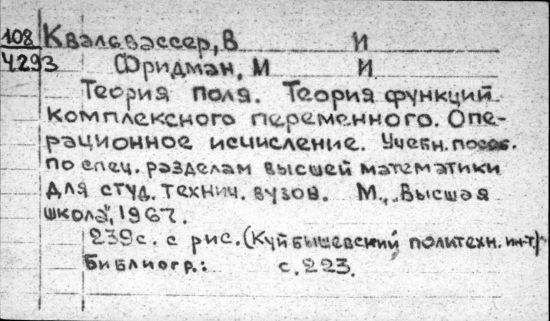 108 Квальвассер, В И
4293 Фридман, М И
Теория поля. Теория функций
комплексного переменного. Опе-
рационное исчисление. Учебн. пособ.
по спец. разделам высшей математики
для студ. технич. вузов. М., „Высшая
школа", 1967.
239с. с рис. (Куйбышевский политехн. ин-т.)
Библиогр.: с.223.